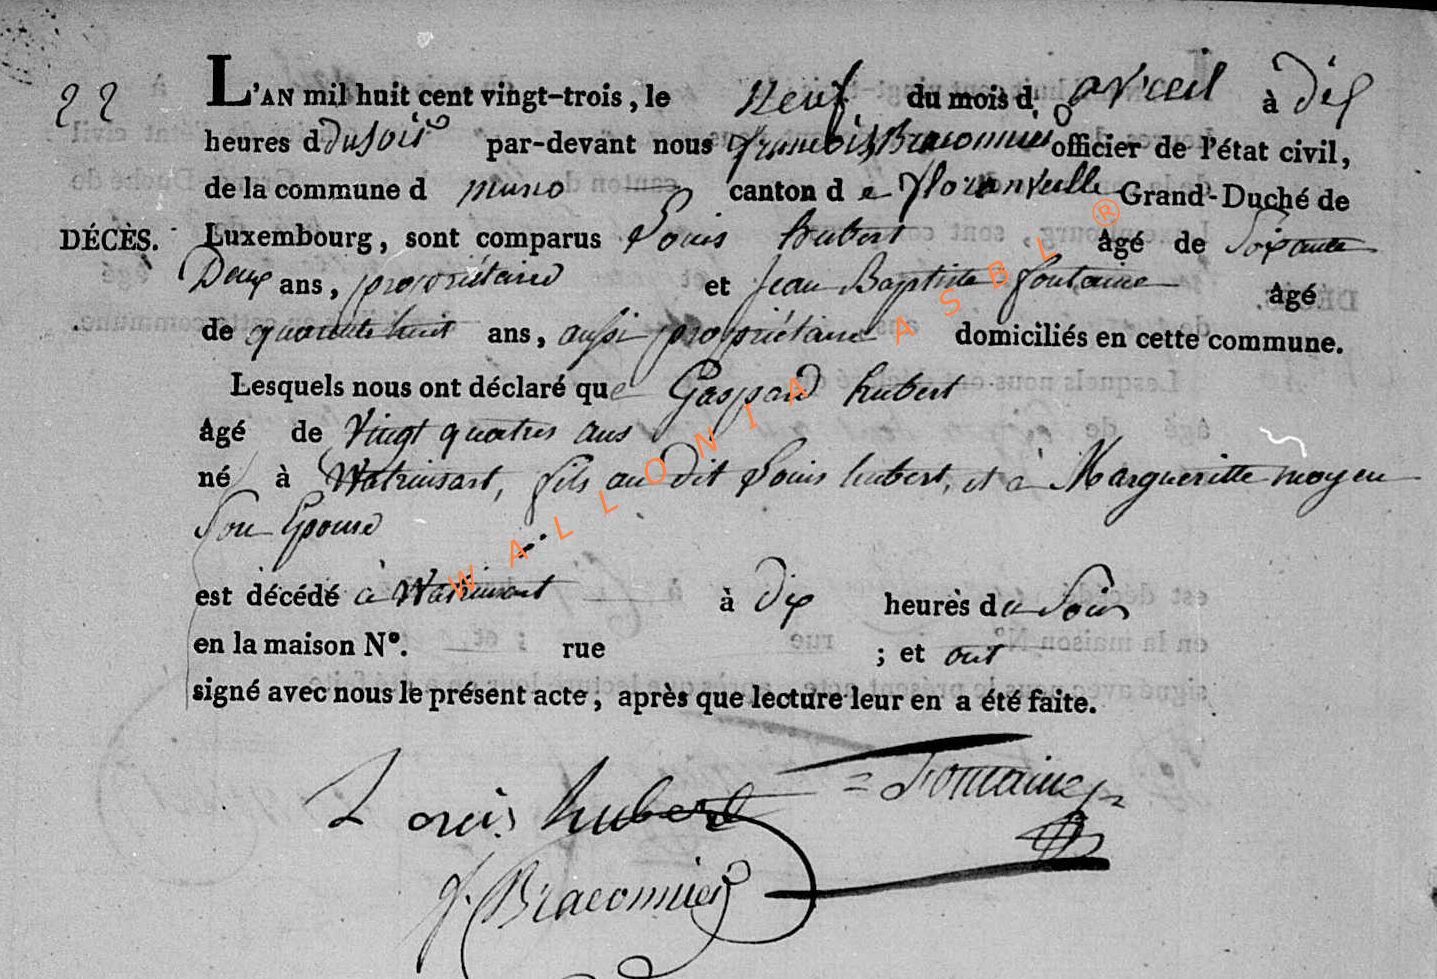 22
L'AN mil huit cent vingt-trois, le neuf du mois d'avril à dix
heures d du soir par-devant nous francois Braconnier officier de l'état civil,
de la commune d muno canton d e florenville Grand-Duché de
DÉCÈS. Luxembourg, sont comparus Louis hubert âgé de Soixante
Deux ans, propriétaire et Jean Baptiste fontaine âgé
de quarante huit ans, aussi propriétaire domiciliés en cette commune.
Lesquels nous ont déclaré que Gaspard hubert
âgé de Vingt quatres ans
né à Watrinsart, fils au dit Louis hubert, et à Margueritte moyen
Son Epouse
est décédé à Watrinsart à dix heures du Soir
en la maison N°. rue ; et ont
signé avec nous le présent acte, après que lecture leur en a été faite.
Louis hubert = Fontaine
f. Braconnier
WALLONIA ASBL ®